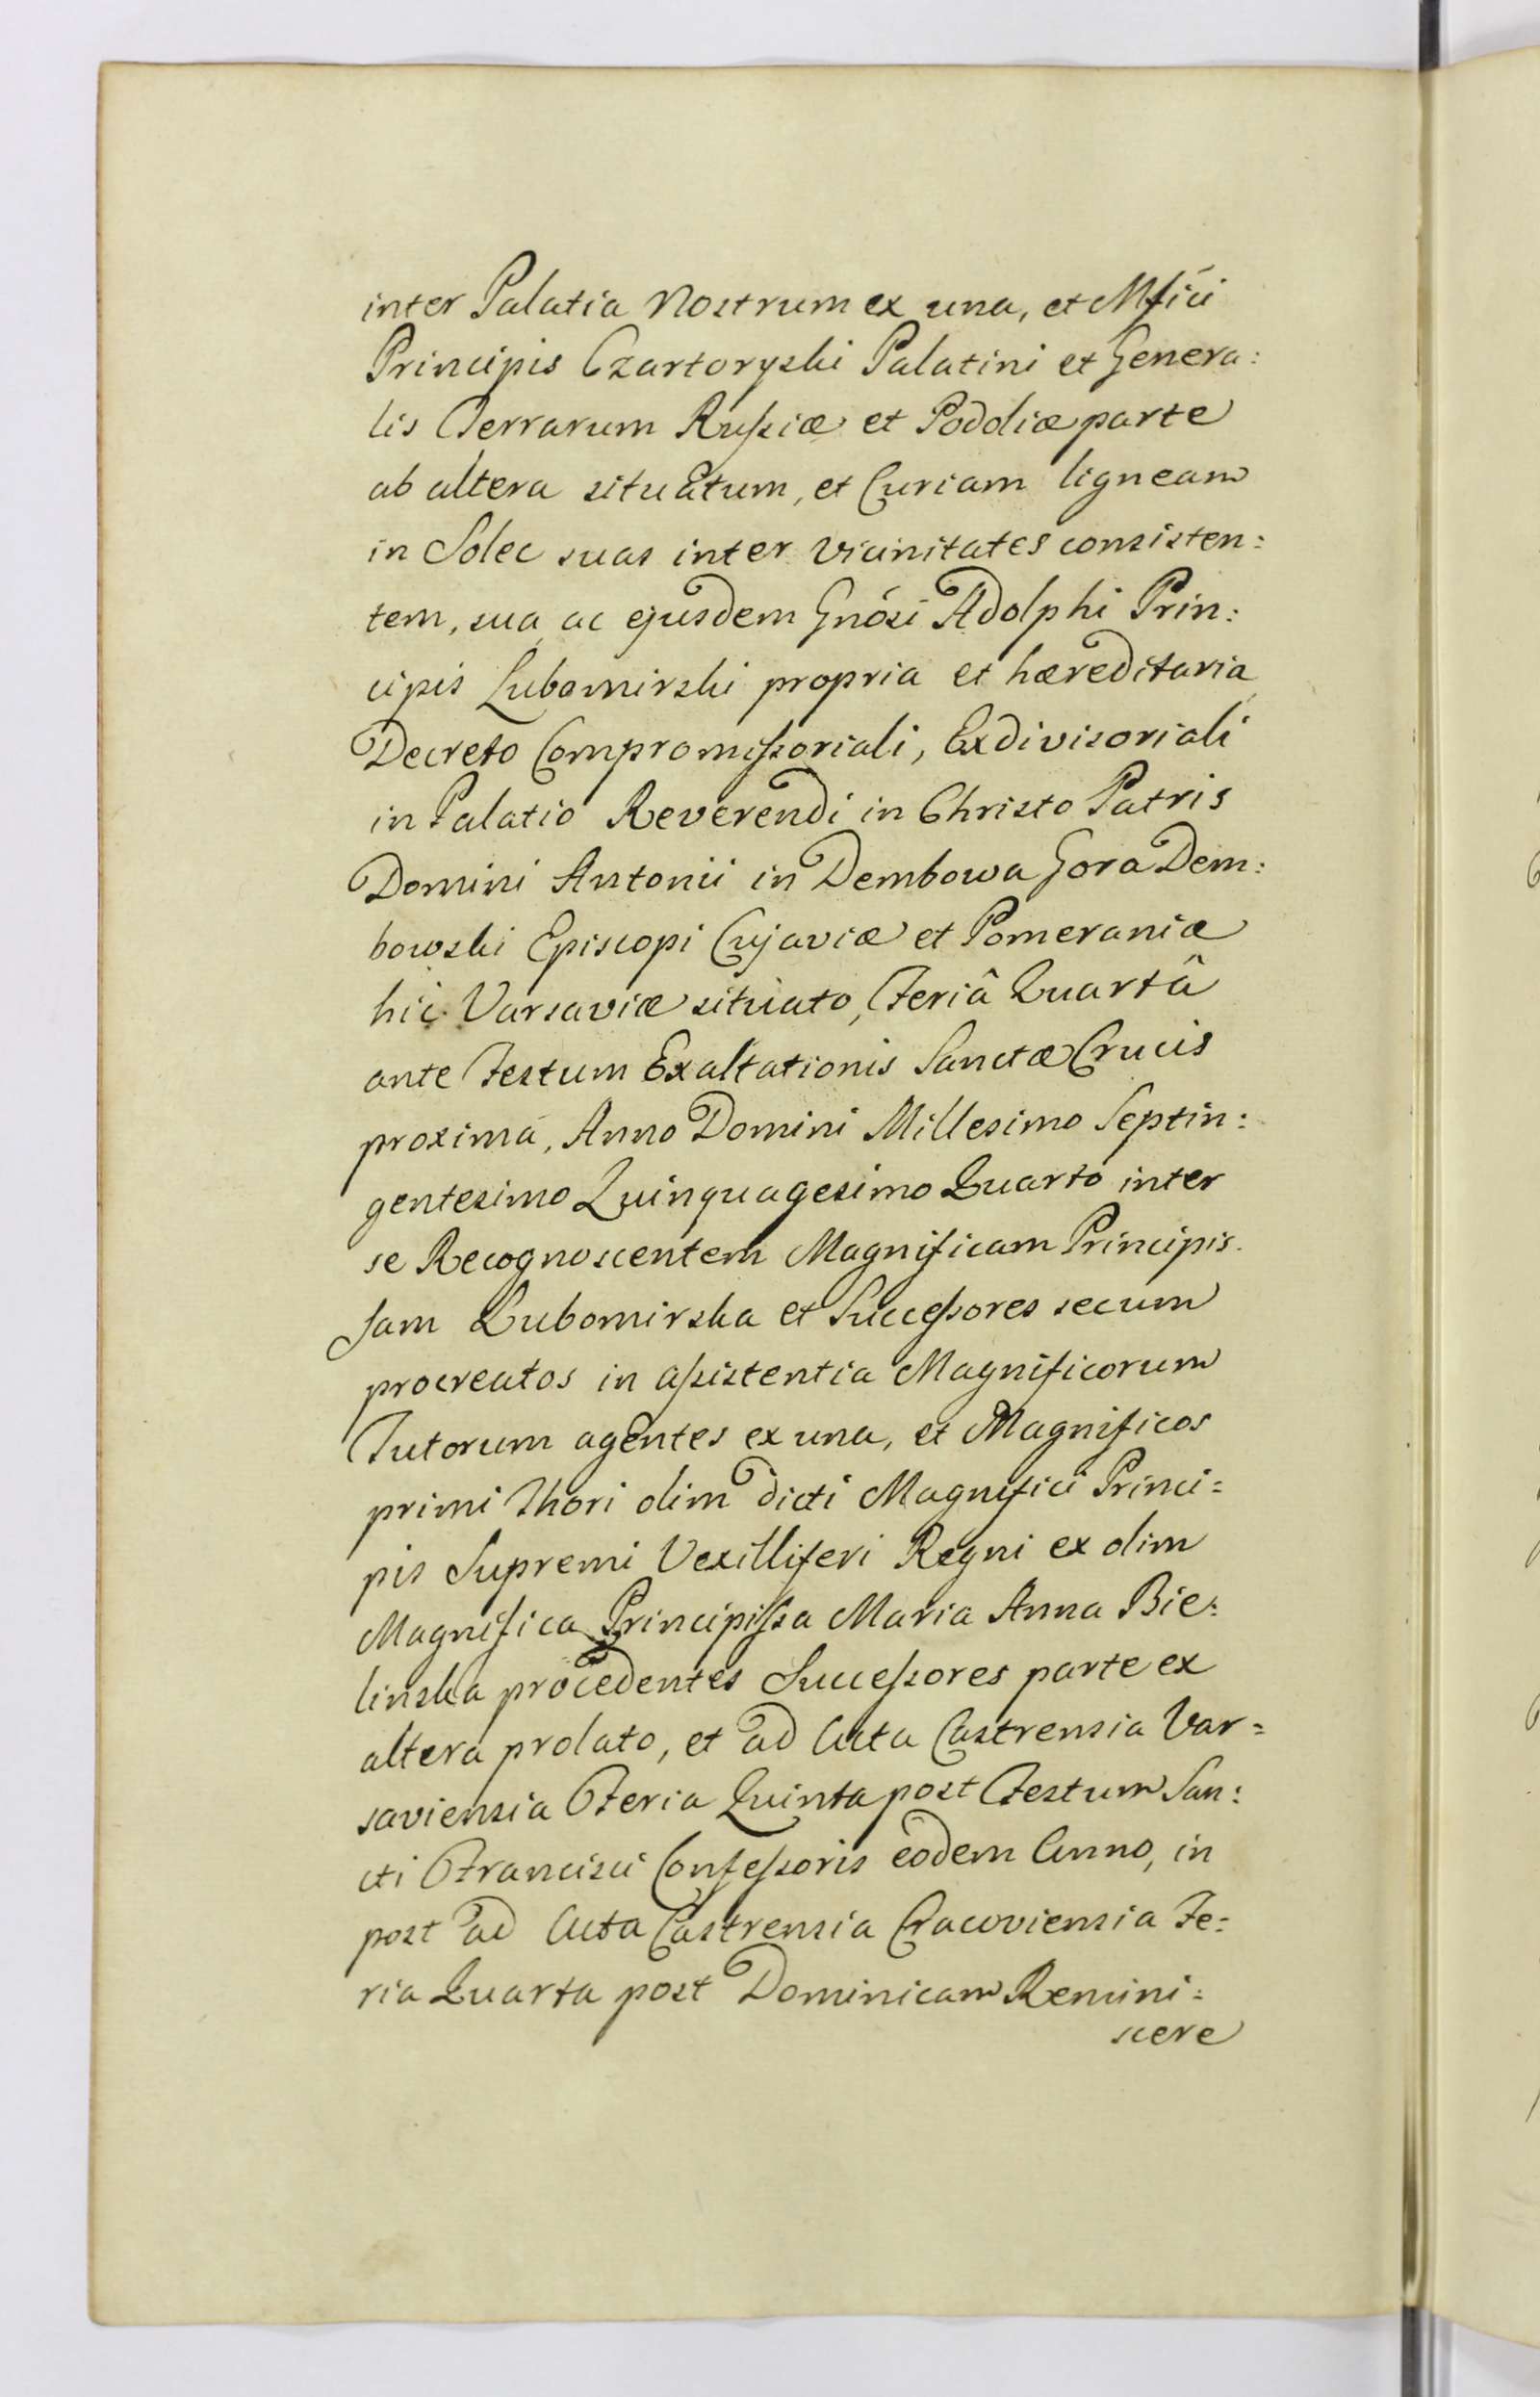 inter Palatia Nostrum ex una, et Mfići
Principis Czartoryski Palatini et Genera:
lis Terrarum Russiæ et Podoliæ parte
ab altera situatum, et Curiam ligneam
in Solec suas inter vicinitates consisten:
tem, sua ac ejusdem Gnósi Adolphi Prin:
cipis Lubomirski propria et hæreditaria
Decreto Compromissoriali, Exdivisoriali
in Palatio Reverendi in Christo Patris
Domini Antonii in Dembowa Gora Dem:
bowski Episcopi Cujaviæ et Pomeraniæ
hic Varsaviæ situato, Feriâ Quartâ
ante Festum Exaltationis Sanctæ Crucis
proxima, Anno Domini Millesimo Septin:
gentesimo Quinquagesimo Quarto inter
se Recognoscentem Magnificam Principis
sam Lubomirska et Successores secum
procreatos in assistentia Magnificorum
Tutorum agentes ex una, et Magnificos
primi Thori olim dicti Magnifici Princi=
pis Supremi Vexilliferi Regni ex olim
Magnifica Principissa Maria Anna Bie:
linska procedentes Successores parte ex
altera prolato, et ad Acta Castrensia Var=
saviensia Feria Quinta post Festum San:
cti Francisci Confessoris eodem Anno, in
post ad Acta Castrensia Cracoviensia Fe=
ria Quarta post Dominicam Remini=
scere